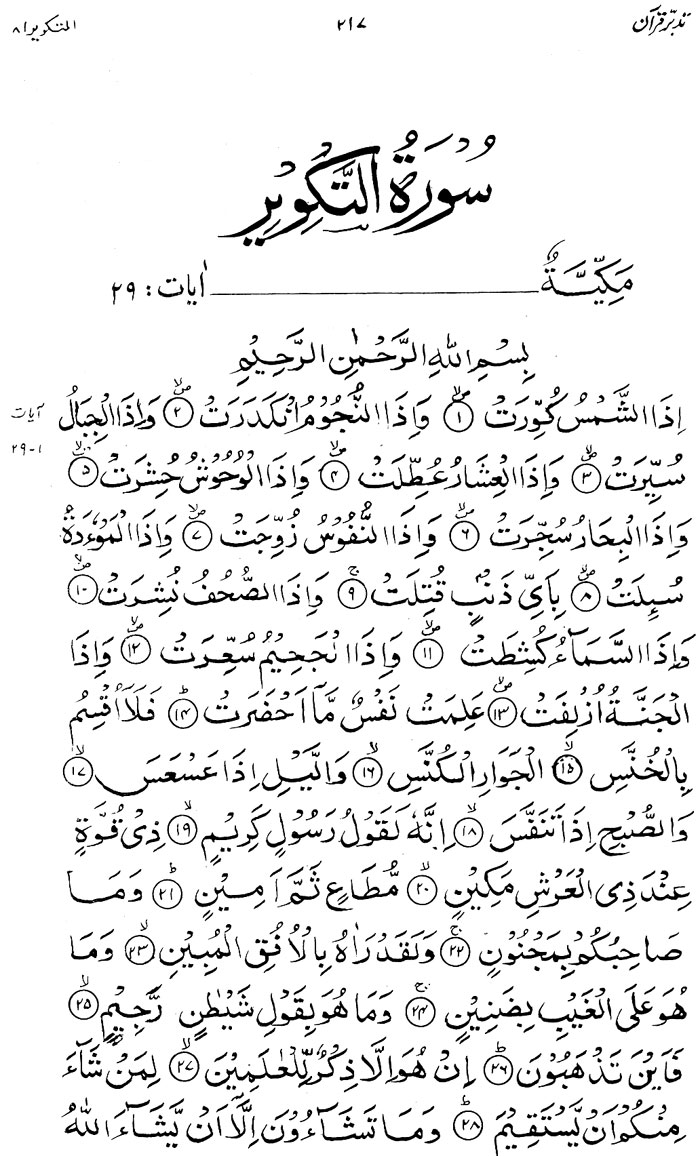 تدبّرِ قرآن ۲۱۷ التکویر ۸۱
سُوْرَةُ التَّكْوِيْرِ
مَكِّيَّةٌ اٰيات: ۲۹
بِسْمِ اللّٰهِ الرَّحْمٰنِ الرَّحِيْمِ
اِذَا الشَّمْسُ كُوِّرَتْ ۙ۱ وَاِذَا النُّجُوْمُ انْكَدَرَتْ ۙ۲ وَاِذَا الْجِبَالُ
آیات
سُيِّرَتْ ۙ۳ وَاِذَا الْعِشَارُ عُطِّلَتْ ۙ۴ وَاِذَا الْوُحُوْشُ حُشِرَتْ ۙ۵
۱-۲۹
وَاِذَا الْبِحَارُ سُجِّرَتْ ۙ۶ وَاِذَا النُّفُوْسُ زُوِّجَتْ ۙ۷ وَاِذَا الْمَوْءٗدَةُ
سُئِلَتْ ۙ۸ بِاَيِّ ذَنْۢبٍ قُتِلَتْ ۚ۹ وَاِذَا الصُّحُفُ نُشِرَتْ ۙ۱۰
وَاِذَا السَّمَآءُ كُشِطَتْ ۙ۱۱ وَاِذَا الْجَحِيْمُ سُعِّرَتْ ۙ۱۲ وَاِذَا
الْجَنَّةُ اُزْلِفَتْ ۙ۱۳ عَلِمَتْ نَفْسٌ مَّاۤ اَحْضَرَتْ ؕ۱۴ فَلَاۤ اُقْسِمُ
بِالْخُنَّسِ ۙ۱۵ الْجَوَارِ الْكُنَّسِ ۙ۱۶ وَالَّيْلِ اِذَا عَسْعَسَ ۙ۱۷
وَالصُّبْحِ اِذَا تَنَفَّسَ ۙ۱۸ اِنَّهٗ لَقَوْلُ رَسُوْلٍ كَرِيْمٍ ۙ۱۹ ذِيْ قُوَّةٍ
عِنْدَ ذِي الْعَرْشِ مَكِيْنٍ ۙ۲۰ مُّطَاعٍ ثَمَّ اَمِيْنٍ ؕ۲۱ وَمَا
صَاحِبُكُمْ بِمَجْنُوْنٍ ۚ۲۲ وَلَقَدْ رَاٰهُ بِالْاُفُقِ الْمُبِيْنِ ۙ۲۳ وَمَا
هُوَ عَلَى الْغَيْبِ بِضَنِيْنٍ ۚ۲۴ وَمَا هُوَ بِقَوْلِ شَيْطٰنٍ رَّجِيْمٍ ۙ۲۵
فَاَيْنَ تَذْهَبُوْنَ ؕ۲۶ اِنْ هُوَ اِلَّا ذِكْرٌ لِّلْعٰلَمِيْنَ ۙ۲۷ لِمَنْ شَآءَ
مِنْكُمْ اَنْ يَّسْتَقِيْمَ ؕ۲۸ وَمَا تَشَآءُوْنَ اِلَّاۤ اَنْ يَّشَآءَ اللّٰهُ